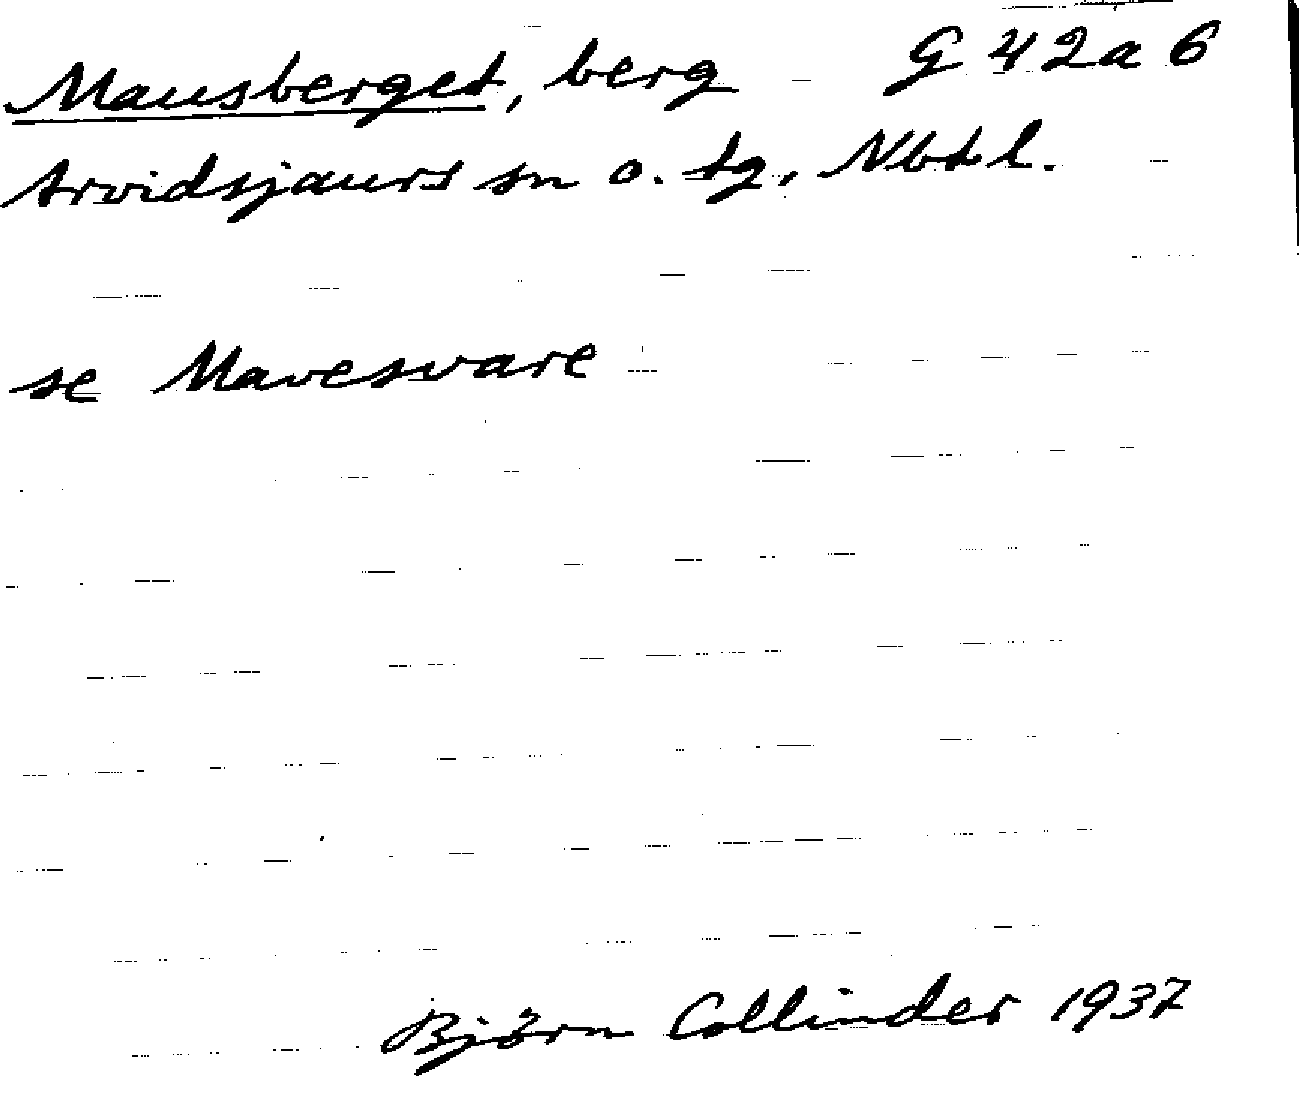 Mausberget, berg G 42a 6
Arvidsjaurs sn o. tg, Nbtl.
se Mavesvare
Björn Collinder 1937